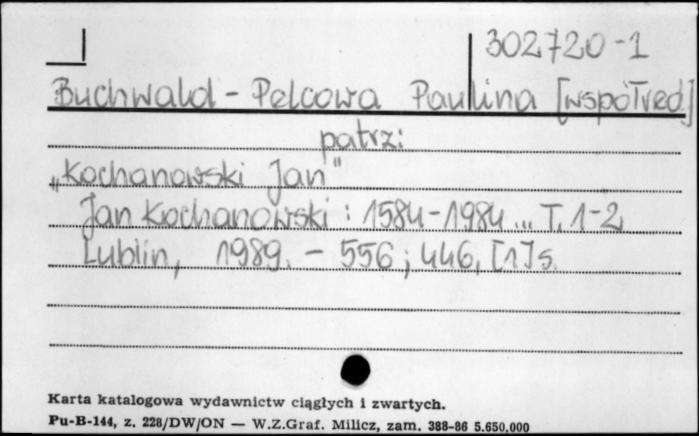 302720-1
Buchwald-Pelcowa Paulina [współred.]
patrz:
„Kochanowski Jan"
Jan Kochanowski : 1584-1984 ... T. 1-2
Lublin, 1989. - 556 ; 446, [1] s.
Karta katalogowa wydawnictw ciągłych i zwartych.
Pu-B-144, z. 228/DW/ON — W.Z.Graf. Milicz, zam. 388-86 5.650.000